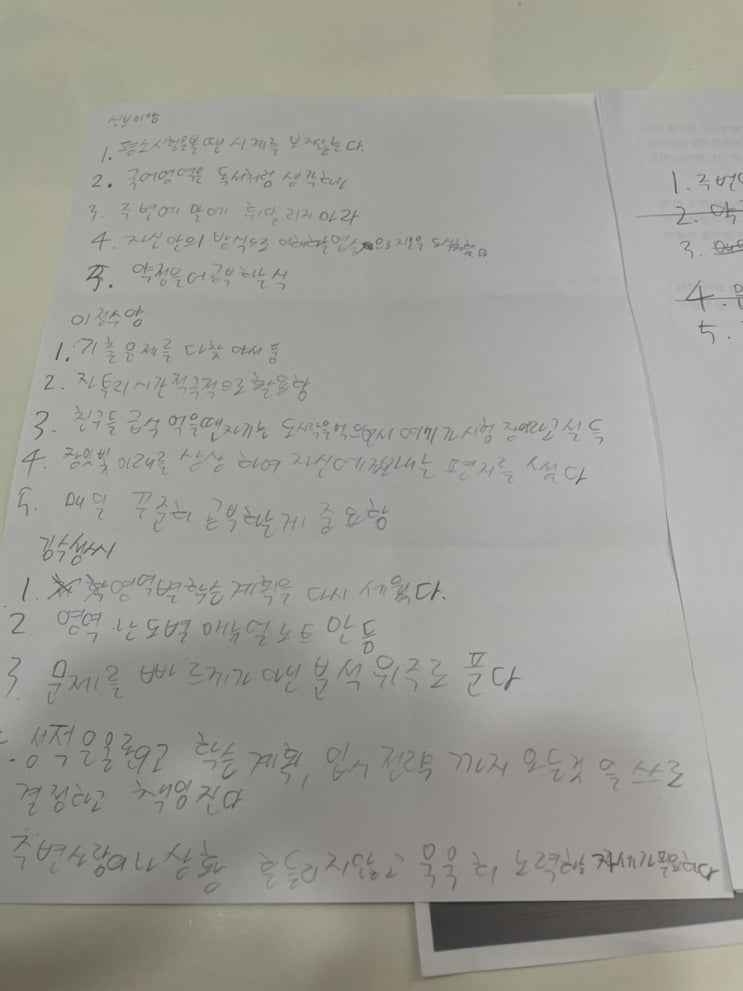 신보미양
1. 평소시험을볼땐 시계를 보지않는다.
2. 국어영역은 독서처럼 생각하라
3. 주변에 말에 휘달리지마라
4. 자신만의 방식으로
5. 약점을 공부할 분석
이정수양
1. 기출문제를 다찾아서 품
2. 자투리시간적극적으로 활용함
3. 친구들 급식 먹을땐자기는 도시락을먹으면서 여기가 시험 장이라고설득
4. 장밋빛 미래를 상상 하여 자신에게보내는 편지를 썼다
5. 매일 꾸준히 공부하는게 중요함
김수생씨
1. 영역별학습계획을 다시 세웠다.
2. 영역 난도별 매뉴얼노트 만듬
3. 문제를 빠르게가 아닌 분석 위주로 푼다
성적을올리고 학습 계획, 입시전략 까지 모든것 을 스스로
결정하고 책임진다
주변사람이나 상황 흔들리지않고 묵묵 히 노력하는 자세가필요하다
1. 주변
2.
3.
4.
5.